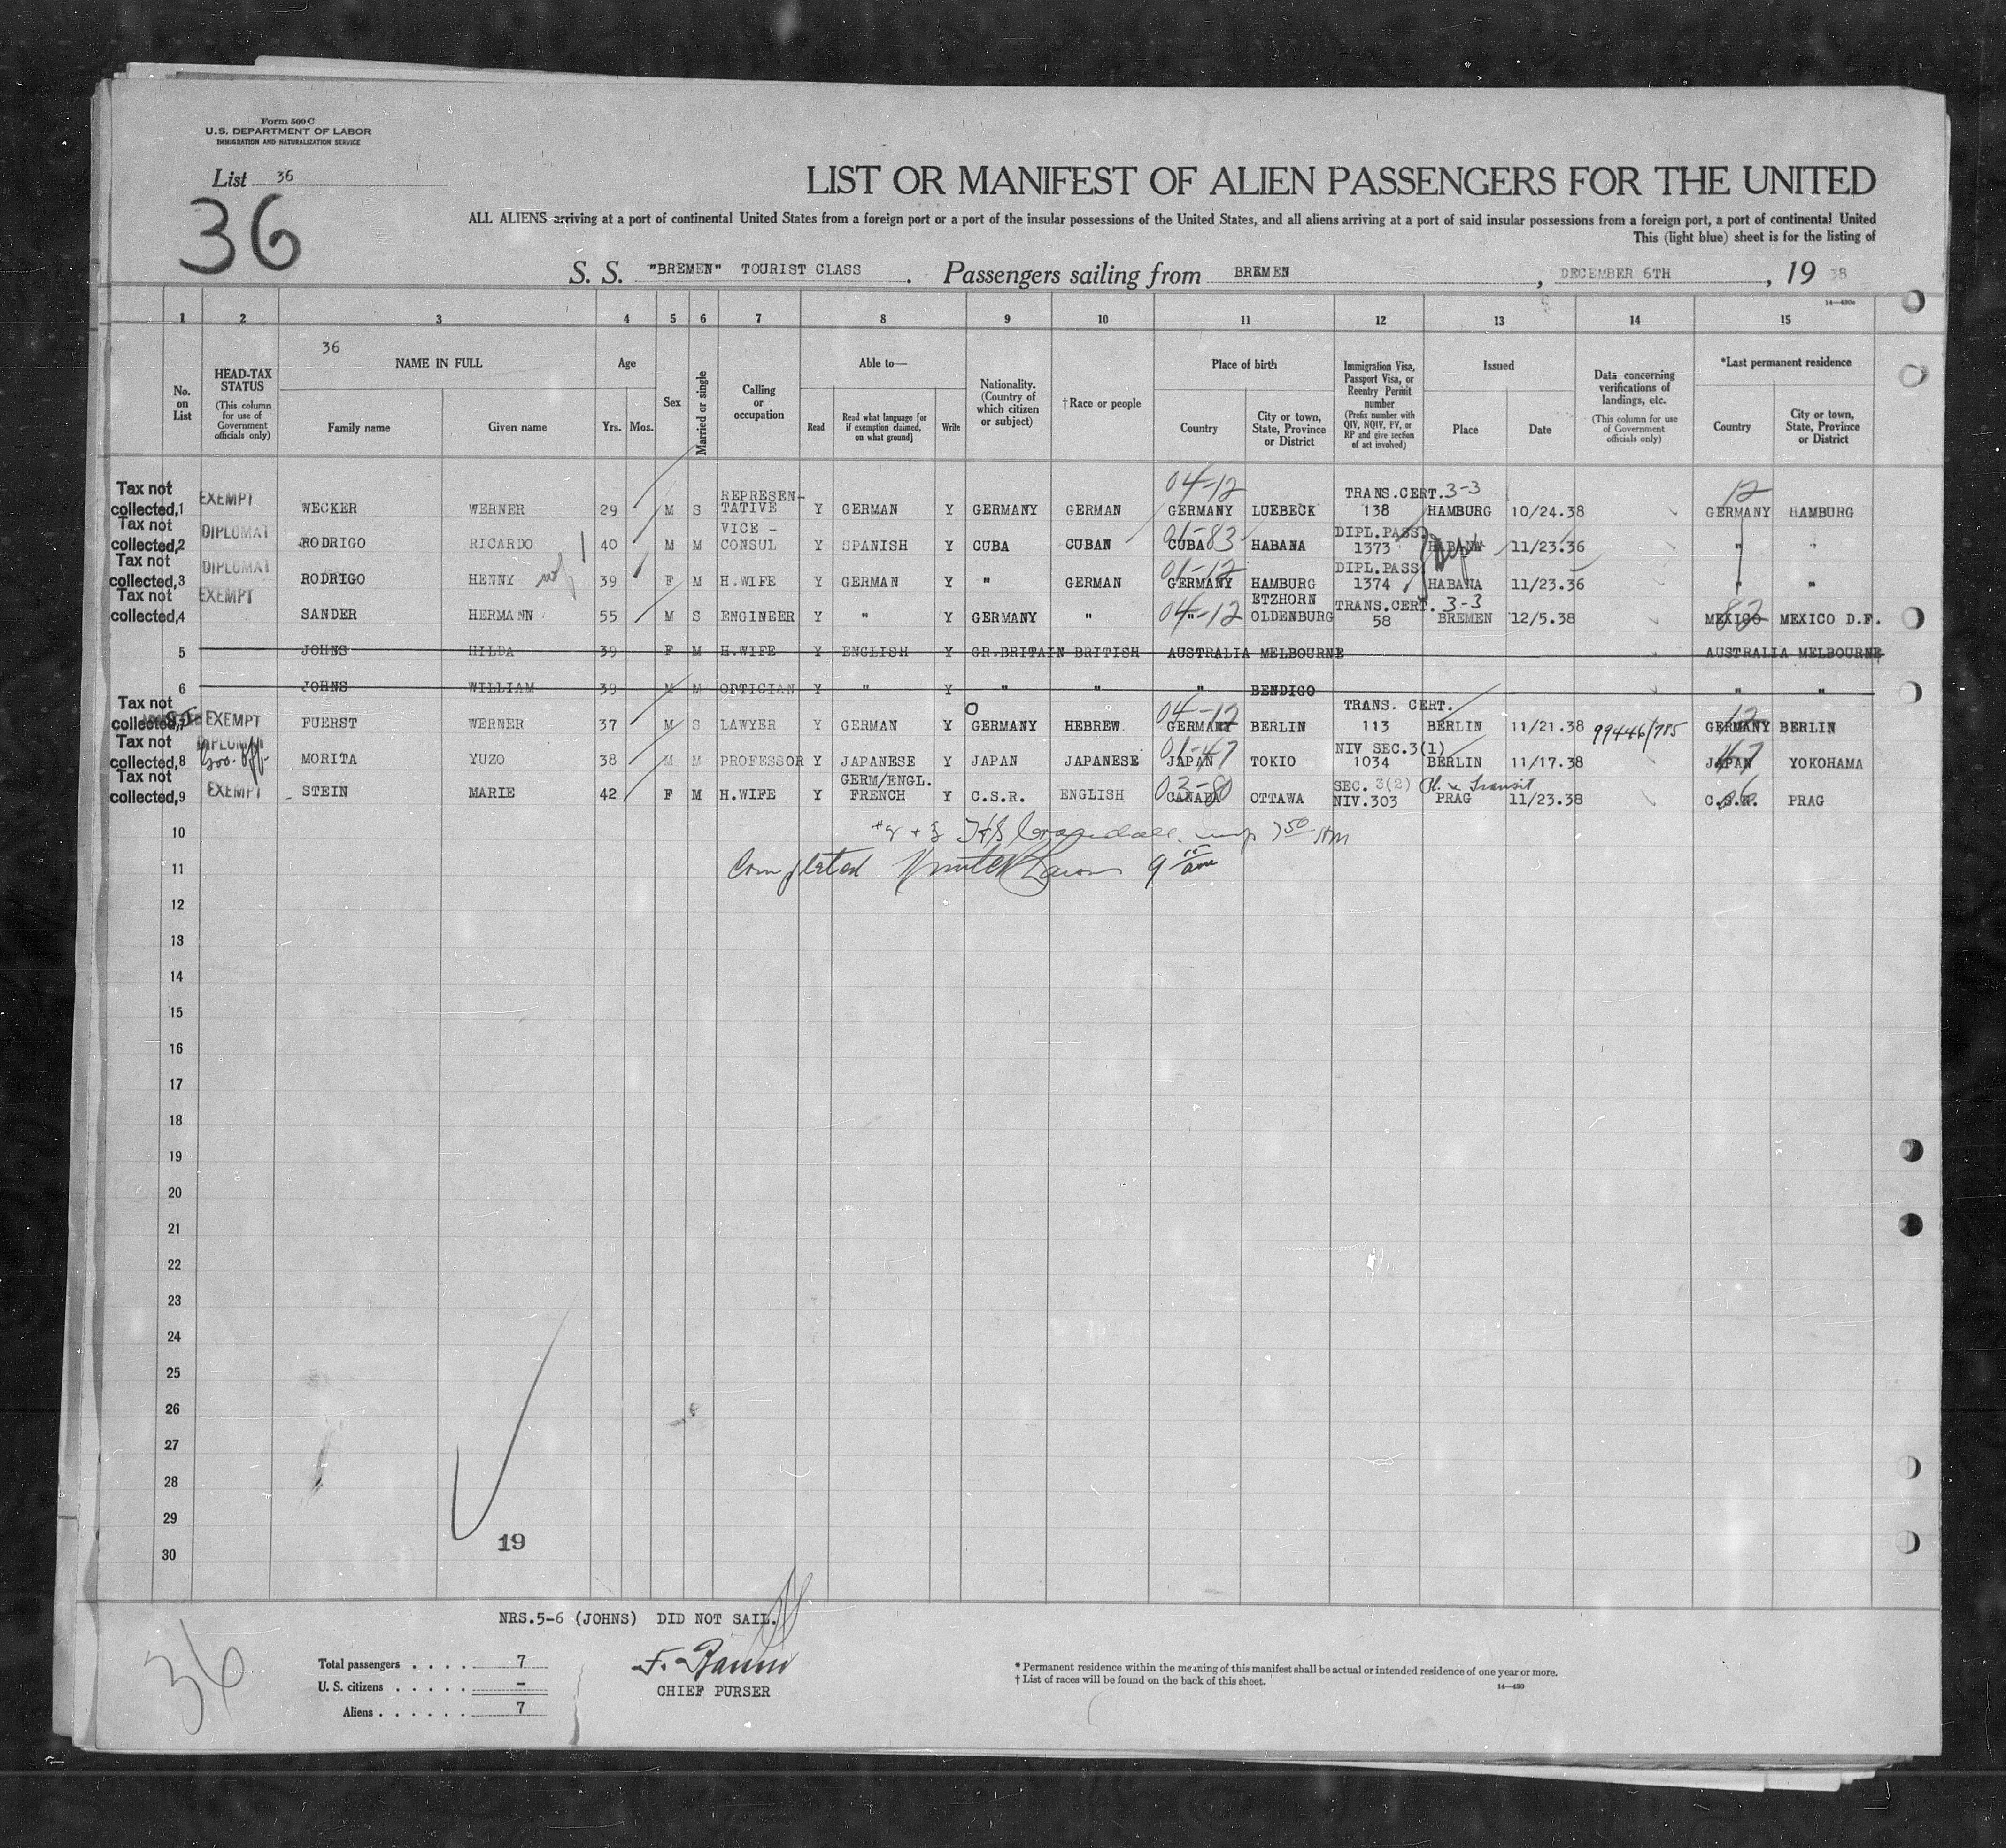 Form 500 C
U.S. DEPARTMENT OF LABOR
IMMIGRATION AND NATURALIZATION SERVICE
List 36
36
LIST OR MANIFEST OF ALIEN PASSENGERS FOR THE UNITED
ALL ALIENS arriving at a port of continental United States from a foreign port or a port of the insular possessions of the United States, and all aliens arriving at a port of said insular possessions from a foreign port, a port of continental United
This (light blue) sheet is for the listing of
S. S. "BREMEN" TOURIST CLASS. Passengers sailing from BREMEN, DECEMBER 6TH, 19 38
14—430a
1 2 3 4 5 6 7 8 9 10 11 12 13 14 15
No. on List
HEAD-TAX STATUS (This column for use of Government officials only)
36
NAME IN FULL
Family name Given name
Age
Yrs. Mos.
Sex
Married or single
Calling or occupation
Able to—
Read Read what language [or if exemption claimed, on what ground] Write
Nationality. (Country of which citizen or subject)
† Race or people
Place of birth
Country City or town, State, Province or District
Immigration Visa, Passport Visa, or Reentry Permit number (Prefix number with QIV, NQIV, PV, or RP and give section of act involved)
Issued
Place Date
Data concerning verifications of landings, etc. (This column for use of Government officials only)
*Last permanent residence
Country City or town, State, Province or District
Tax not REPRESEN- 04-12 TRANS.CERT. 3-3 12
collected,1 EXEMPT WECKER WERNER 29 M S TATIVE Y GERMAN Y GERMANY GERMAN GERMANY LUEBECK 138 HAMBURG 10/24.38 GERMANY HAMBURG
Tax not VICE - 01-83 DIPL.PASS.
collected,2 DIPLOMAT RODRIGO RICARDO 40 M M CONSUL Y SPANISH Y CUBA CUBAN CUBA HABANA 1373 HABANA 11/23.36 " "
Tax not 01-12 DIPL.PASS
collected,3 DIPLOMAT RODRIGO HENNY 39 F M H.WIFE Y GERMAN Y " GERMAN GERMANY HAMBURG 1374 HABANA 11/23.36 " "
Tax not 04-12 ETZHORN TRANS.CERT. 3-3 82
collected,4 EXEMPT SANDER HERMANN 55 M S ENGINEER Y " Y GERMANY " " OLDENBURG 58 BREMEN 12/5.38 MEXICO MEXICO D.F.
5 JOHNS HILDA 39 F M H.WIFE Y ENGLISH Y GR.BRITAIN BRITISH AUSTRALIA MELBOURNE AUSTRALIA MELBOURNE
6 JOHNS WILLIAM 39 M M OPTICIAN Y " Y " " " BENDIGO " "
Tax not 04-12 TRANS. CERT. 12
collected,7 EXEMPT FUERST WERNER 37 M S LAWYER Y GERMAN Y GERMANY HEBREW GERMANY BERLIN 113 BERLIN 11/21.38 99446/785 GERMANY BERLIN
Tax not DIPLOMAT 01-47 NIV SEC.3(1) 47
collected,8 Gov. off. MORITA YUZO 38 M M PROFESSOR Y JAPANESE Y JAPAN JAPANESE JAPAN TOKIO 1034 BERLIN 11/17.38 JAPAN YOKOHAMA
Tax not GERM/ENGL. 03-80 SEC. 3(2) Pl. & Transit 06
collected,9 EXEMPT STEIN MARIE 42 F M H.WIFE Y FRENCH Y C.S.R. ENGLISH CANADA OTTAWA NIV.303 PRAG 11/23.38 C.S.R. PRAG
10
11 Completed 9 15 am
12
13
14
15
16
17
18
19
20
21
22
23
24
25
26
27
28
29
19
30
NRS.5-6 (JOHNS) DID NOT SAIL.
36
Total passengers . . . . 7
U. S. citizens . . . . . -
Aliens . . . . . . 7
CHIEF PURSER
* Permanent residence within the meaning of this manifest shall be actual or intended residence of one year or more.
† List of races will be found on the back of this sheet.
14—430